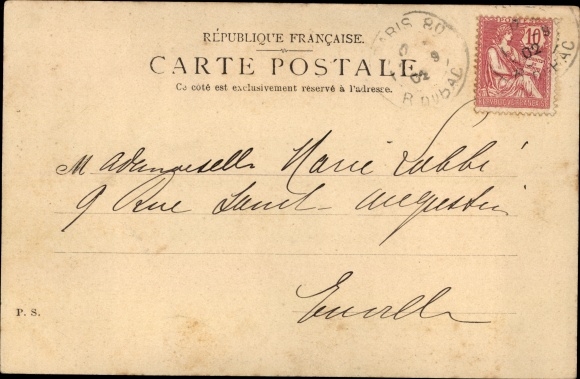 RÉPUBLIQUE FRANÇAISE.
CARTE POSTALE
Ce côté est exclusivement réservé à l'adresse.
PARIS 80
9
02
R du BAC
10
REPUBLIQUE FRANÇAISE
9
02
BAC
Mademoiselle Marie Labbé
9 Rue Saint-Augustin
P. S.